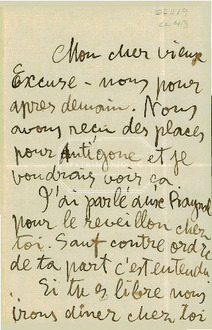 Mon cher vieux
Excuse-nous pour
apres demain. Nous
avons reçu des places
pour Antigone et je
voudrais voir ça.
J'ai parlé avec
pour le reveillon chez
toi. Sauf contre ordre
de ta part c'est entendu
Si tu es libre nous
irons dîner chez toi